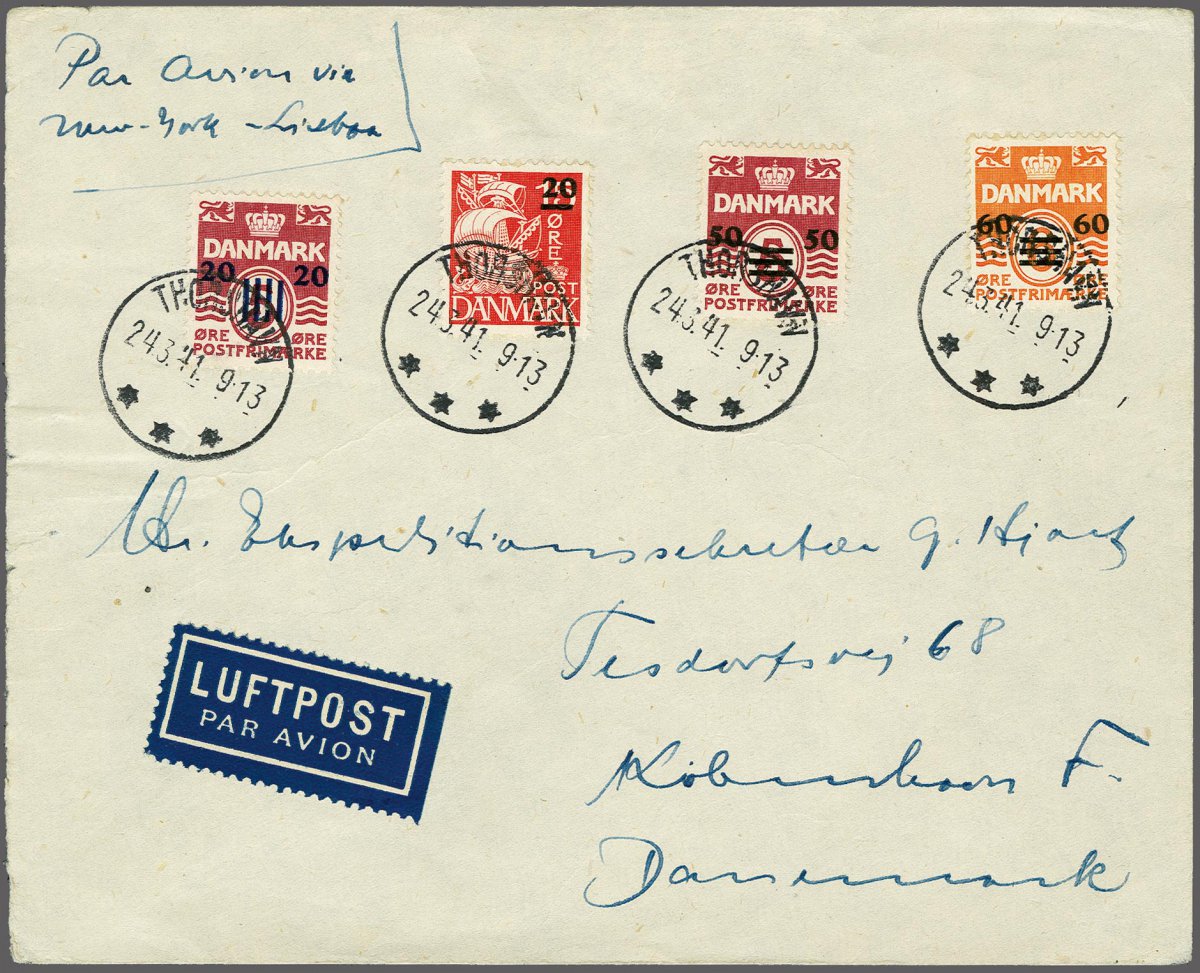 Par Avion via
New-York - Lisboa
DANMARK
20 20
ØRE ØRE
POSTFRIMÆRKE
20
ØRE
POST
DANMARK
DANMARK
50 5 50
ØRE ØRE
POSTFRIMÆRKE
DANMARK
60 6 60
ØRE ØRE
POSTFRIMÆRKE
THORSHAVN
24.3.41. 9-13
THORSHAVN
24.3.41. 9-13
THORSHAVN
24.3.41. 9-13
THORSHAVN
24.3.41. 9-13
Hr. Ekspeditionssekretær G. Hjort
Tesdorfsvej 68
København F.
Danemark
LUFTPOST
PAR AVION